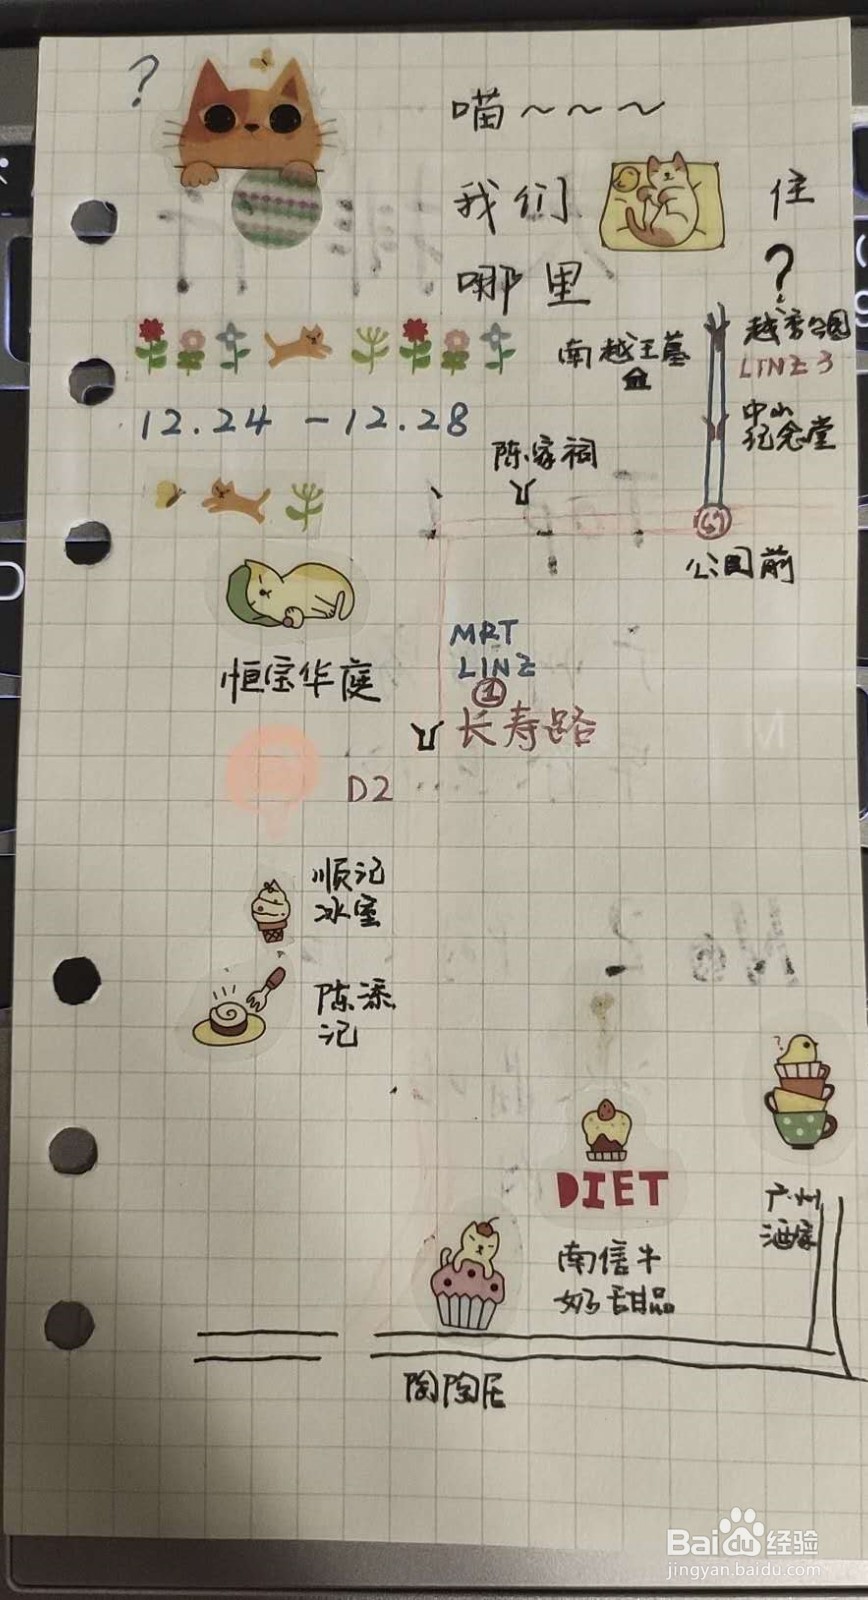 ?
喵～～～
我们 住
哪里 ?
南越王墓
越秀公园
LINZ 3
12.24 － 12.28
中山
纪念堂
陈家祠
公园前
MRT
LINZ
①
长寿路
恒宝华庭
D2
顺记
冰室
陈添
记
DIET
广州
酒家
南信牛
奶甜品
陶陶居
Baidu经验
jingyan.baidu.com